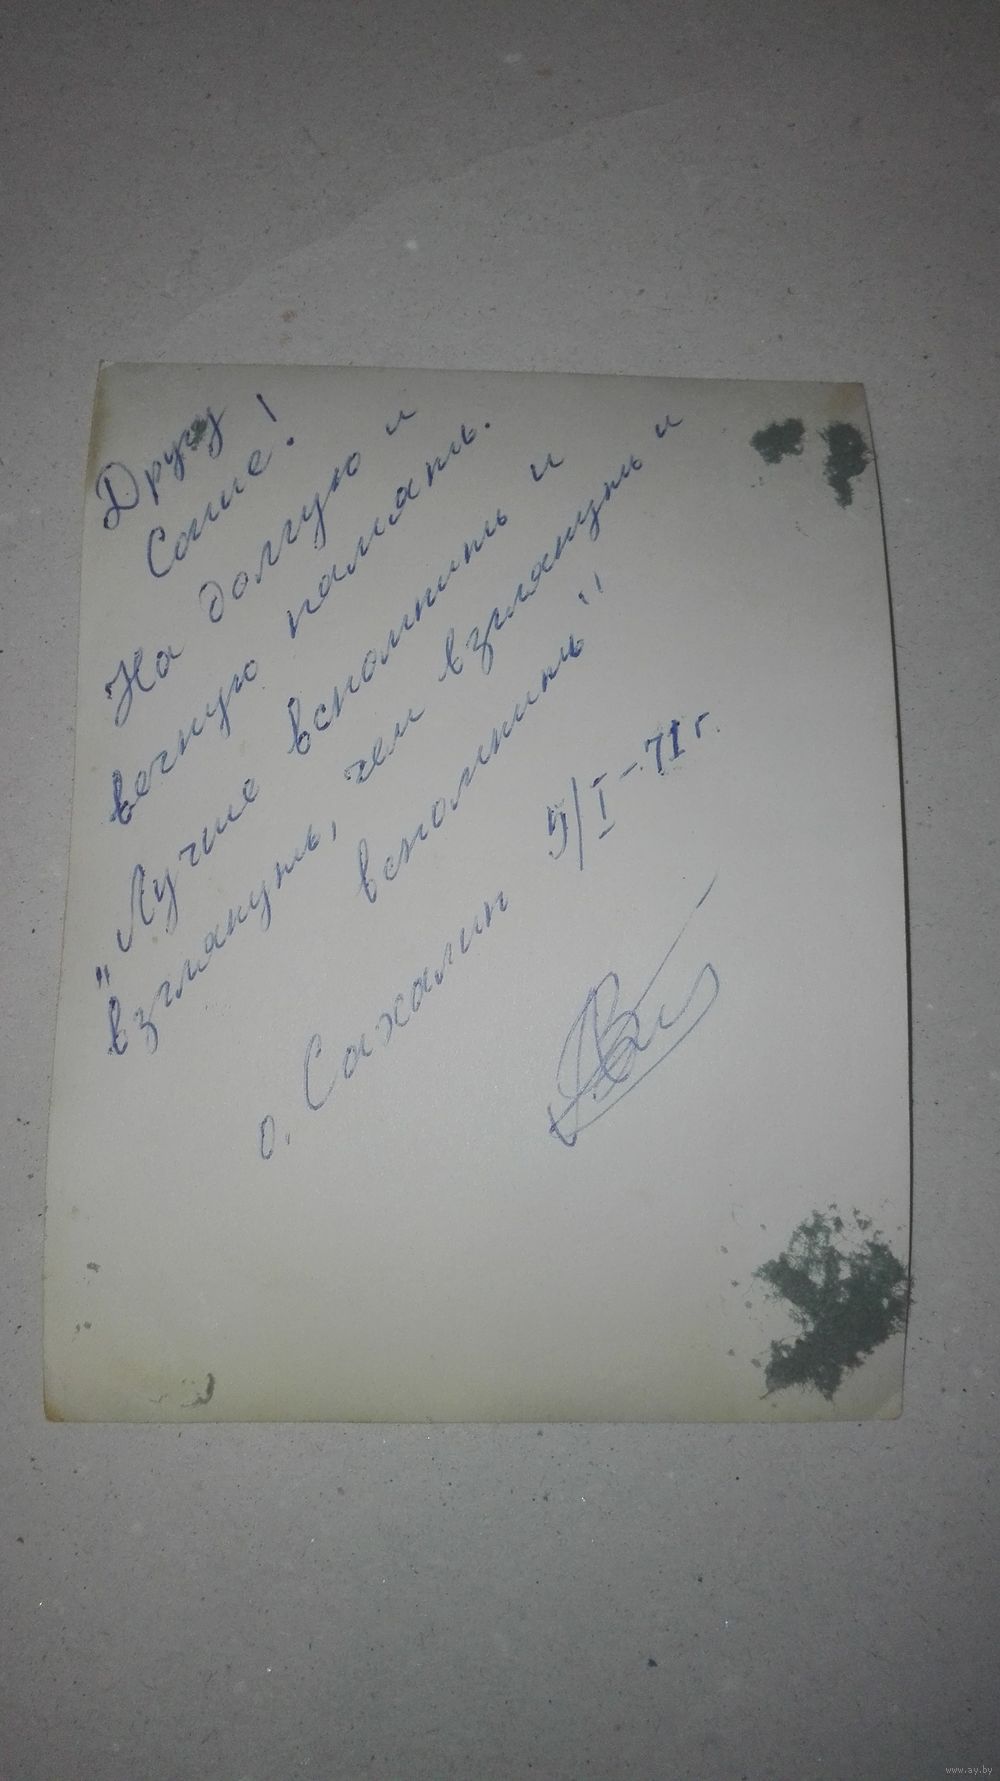 Другу
Саше!
На долгую и
вечную память.
„Лучше вспомнить и
взглянуть, чем взглянуть и
вспомнить"
о. Сахалин 5/I-71г.
www.ay.by